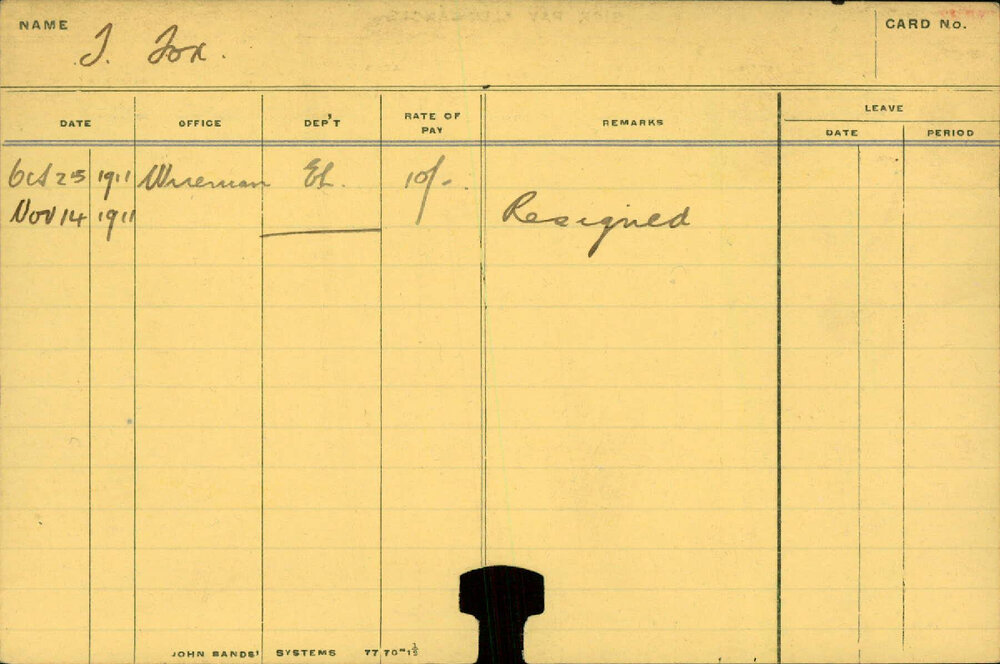 NAME J. Fox. CARD No.
DATE OFFICE DEP'T RATE OF PAY REMARKS LEAVE
DATE PERIOD
Oct 25 1911 Wireman EL. 10/-
Nov 14 1911 Resigned
JOHN SANDS' SYSTEMS